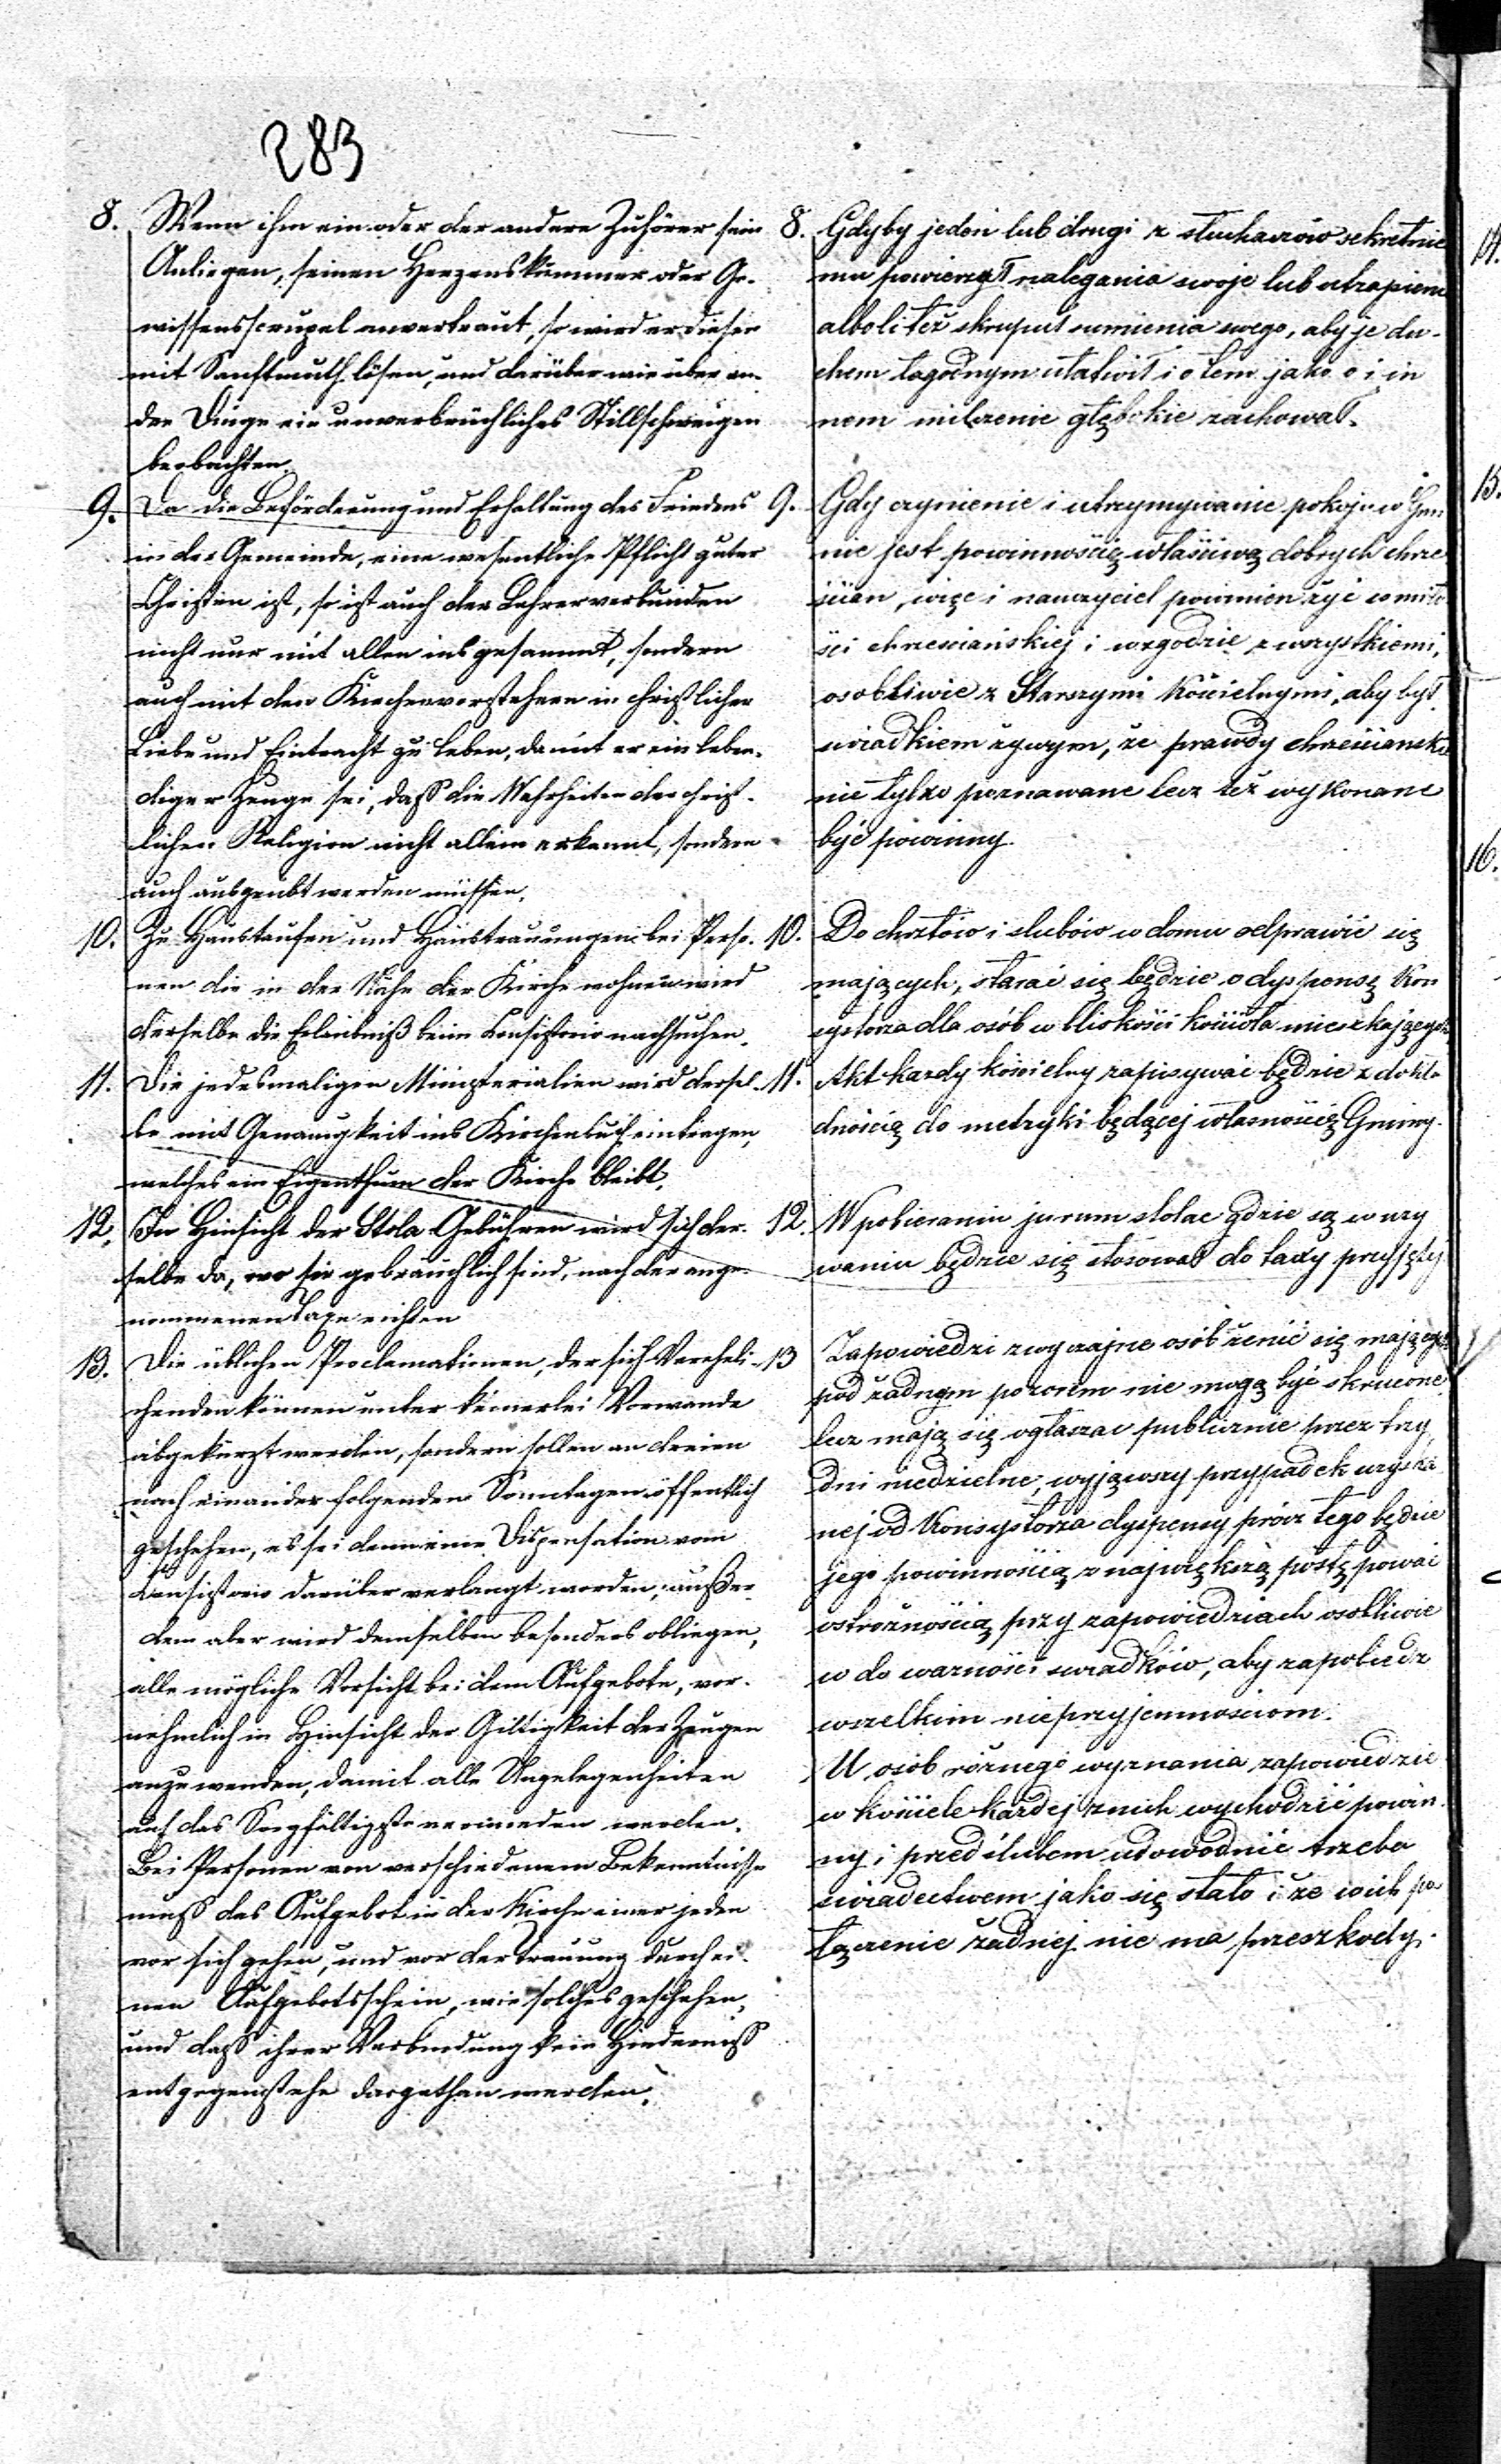 283
8. Wenn ihm ein oder der andere Zuhörer sein
Anliegen, seinen Herzenskummer oder Ge-
wissensscrupel anvertraut, so wird er diesen
mit Sanftmuth lösen, und darüber wie über an-
dre Dinge ein unverbrüchliches Stillschweigen
beobachten.
9. Da die Beförderung und Erhaltung des Friedens
in der Gemeinde, eine wesentliche Pflicht guter
Christen ist, so ist auch der Lehrer verbunden
nicht nur mit allen insgesammt, sondern
auch mit den Kirchenvorstehern in christlicher
Liebe und Eintracht zu leben, damit er ein leben-
diger Zeuge sei, daß die Wahrheiten der christ-
lichen Religion nicht allein erkannt, sondern
auch ausgeübt werden müssen.
10. Zu Haustaufen und Haustrauungen bei Perso-
nen die in der Nähe der Kirche wohnen wird
derselbe die Erlaubniß beim Consistorio nachsuchen.
11. Die jedesmaligen Ministerialien wird dersel-
be mit Genauigkeit ins Kirchenbuch eintragen,
welches ein Eigenthum der Kirche bleibt.
12. In Hinsicht der Stola Gebühren wird sich der-
selbe da, wo sie gebräuchlich sind, nach der ange-
nommenen Taxe richten
13. Die üblichen Proclamationen, der sich Vereheli-
chenden können unter keinerlei Vorwande
abgekürzt werden, sondern sollen an dreien
nach einander folgenden Sonntagen öffentlich
geschehen, es sei denn eine Dispensation vom
Consistorio darüber verlangt worden; außer-
dem aber wird demselben besonders obliegen,
alle mögliche Vorsicht bei dem Aufgebote, vor-
nehmlich in Hinsicht der Giltigkeit der Zeugen
anzuwenden, damit alle Ungelegenheiten
auf das Sorgfältigste vermieden werden.
Bei Personen von verschiedenem Bekenntnisse
muß das Aufgebot in der Kirche einer jeden
vor sich gehen, und vor der Trauung durch ei-
nen Aufgebotsschein, wie solches geschehen,
und daß ihrer Verbindung kein Hinderniß
entgegenstehe dargethan werden.
8. Gdyby jeden lub drugi z słuchaczów sekretnie
mu powierzył nalegania swoje lub utrapienie
alboli też skrupuł sumienia swego, aby je du-
chem łagodnym ułatwił i o tem jako o i in
nem milczenie głębokie zachował.
9. Gdy czynienie i utrzymywanie pokoju w Gmi
nie jest powinnością właściwą dobrych chrze
ścian, więc i nauczyciel powinien żyć w miło
ści chrześciańskiej i w zgodzie z wszystkiemi,
osobliwie z Starszymi Kościelnymi, aby był
świadkiem żywym, że prawdy chrześciańskie
nie tylko poznawane lecz też wykonane
być powinny.
10. Do chrztów i ślubów w domu odprawić się
mających, starać się będzie o dyspensę Kon
systorza dla osób w bliskości kościoła mieszkających
11. Akt każdy kościelny zapisywać będzie z dokła
dnością do metryki będącej własnością Gminy.
12. W pobieraniu jurum stolae gdzie są w uży
waniu będzie się stosował do taxy przyjętej
13 Zapowiedzi zwyczajne osób żenić się mających
pod żadnym pozorem nie mogą być skrucone
lecz mają się ogłaszac publicznie przez trzy
Dni niedzielne, wyjąwszy przypadek uzyska
nej od Konsystorza dyspensy prócz tego będzie
jego powinnością z największą postępować
ostrożnością przy zapowiedziach osobliwie
w do warności świadków, aby zapobiedz
wszelkim nieprzyjemnosciom.
U osób różnego wyznania zapowiedzie
w kościele każdej z nich wychodzić powin
ny i przed ślubem udowodnić trzeba
świadectwem jako się stało i że w ich po
łączenie żadnej nie ma przeszkody.
14.
15.
16.